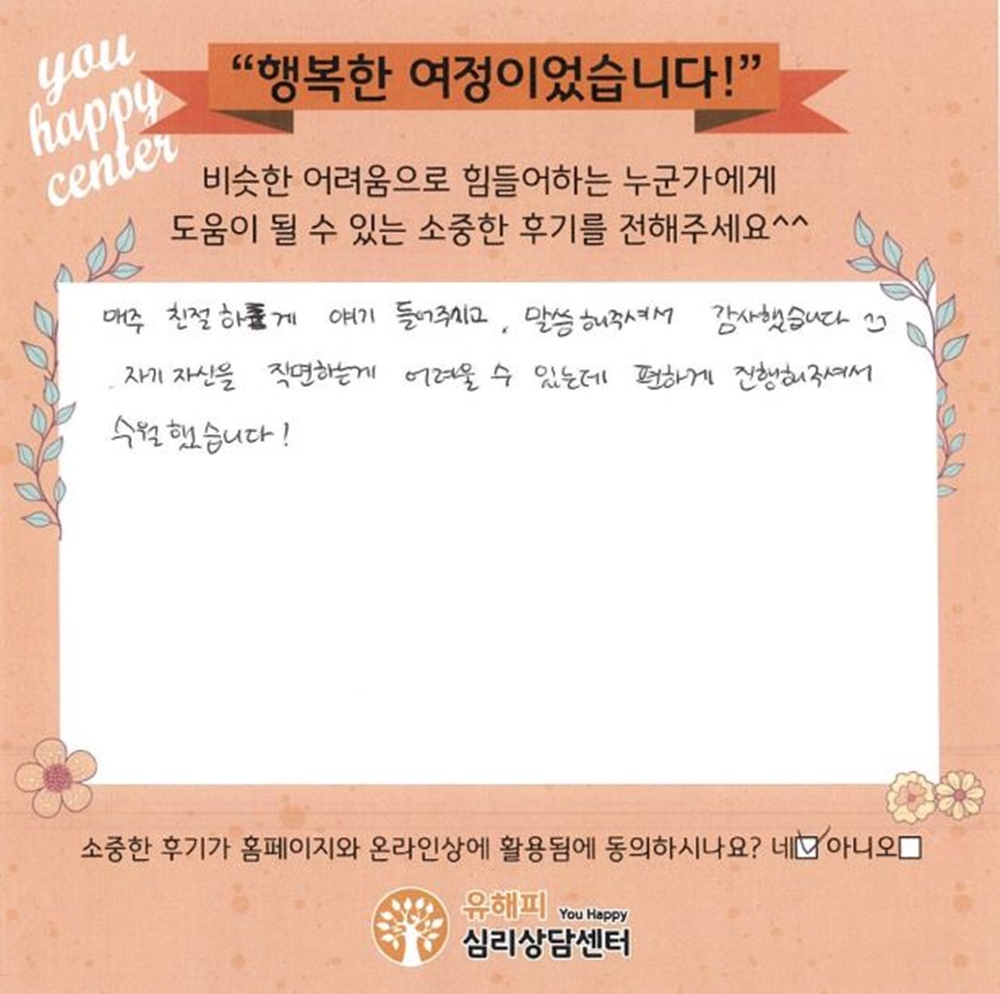 you
happy
center
“행복한 여정이었습니다!”
비슷한 어려움으로 힘들어하는 누군가에게
도움이 될 수 있는 소중한 후기를 전해주세요^^
매주 친절하게 얘기 들어주시고, 말씀해주셔서 감사했습니다 :)
자기 자신을 직면하는게 어려울 수 있는데 편하게 진행해주셔서
수월했습니다!
소중한 후기가 홈페이지와 온라인상에 활용됨에 동의하시나요? 네☑아니오□
유해피 You Happy
심리상담센터